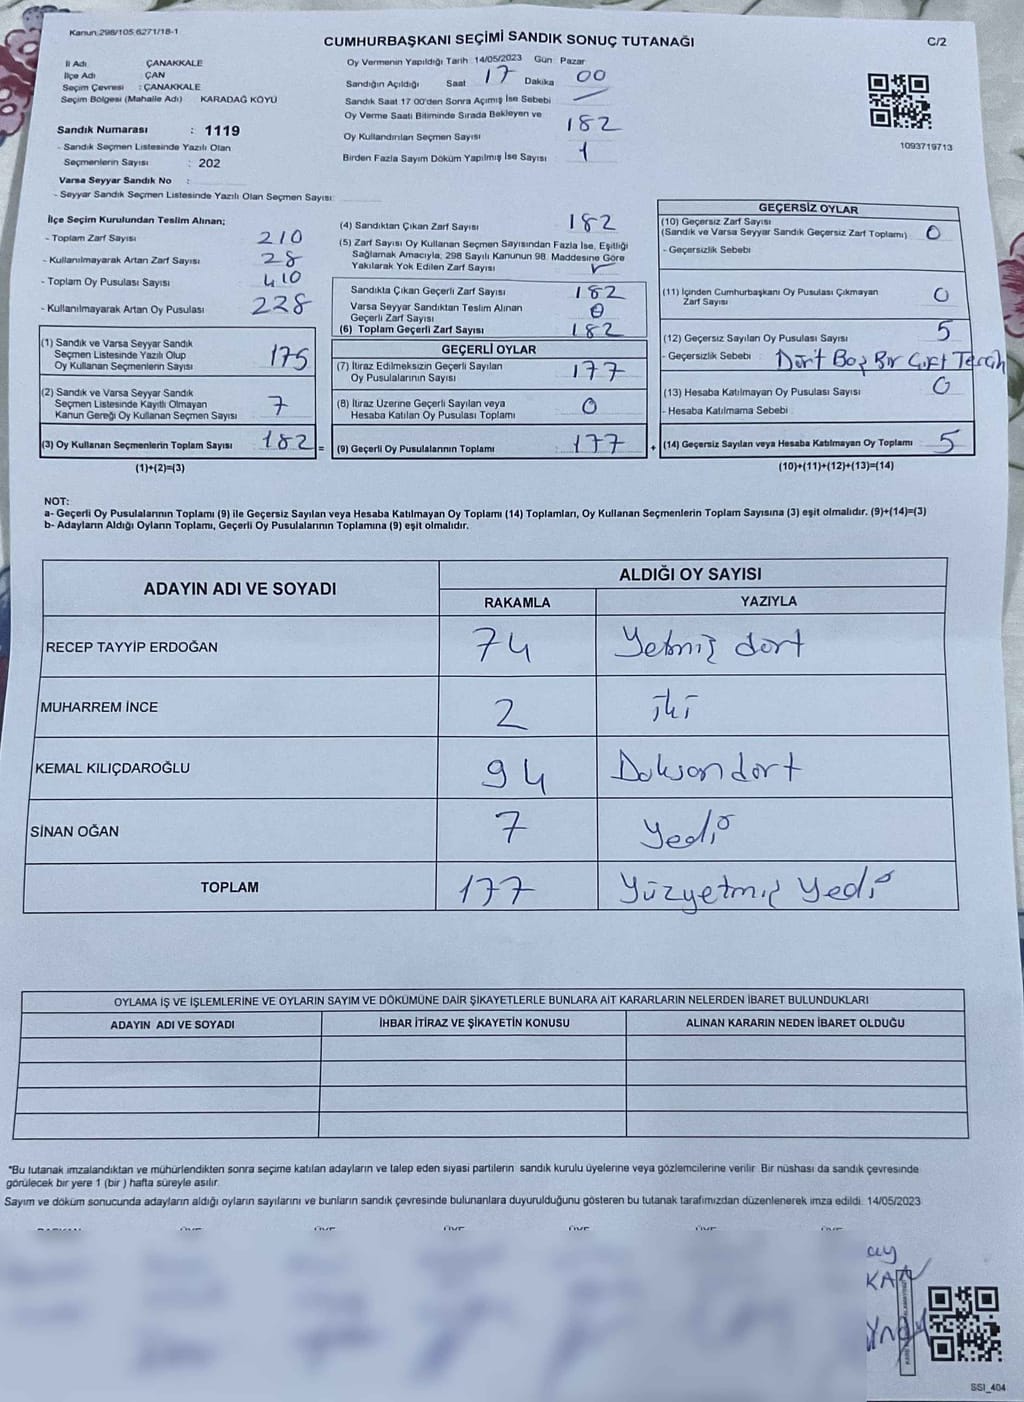 Kanun:298/105,6271/18-1
CUMHURBAŞKANI SEÇİMİ SANDIK SONUÇ TUTANAĞI
C/2
İl Adı ÇANAKKALE
İlçe Adı ÇAN
Seçim Çevresi : ÇANAKKALE
Seçim Bölgesi (Mahalle Adı) KARADAĞ KÖYÜ
Sandık Numarası : 1119
- Sandık Seçmen Listesinde Yazılı Olan
Seçmenlerin Sayısı : 202
Varsa Seyyar Sandık No :
- Seyyar Sandık Seçmen Listesinde Yazılı Olan Seçmen Sayısı:
Oy Vermenin Yapıldığı Tarih :14/05/2023 Gün Pazar
Sandığın Açıldığı Saat 17 Dakika 00
Sandık Saat 17 00'den Sonra Açımış İse Sebebi
Oy Verme Saati Bitiminde Sırada Bekleyen ve
Oy Kullandırılan Seçmen Sayısı 182
Birden Fazla Sayım Döküm Yapılmış İse Sayısı 1
1093719713
İlçe Seçim Kurulundan Teslim Alınan;
- Toplam Zarf Sayısı 210
- Kullanılmayarak Artan Zarf Sayısı 28
- Toplam Oy Pusulası Sayısı 410
- Kullanılmayarak Artan Oy Pusulası 228
(1) Sandık ve Varsa Seyyar Sandık
Seçmen Listesinde Yazılı Olup
Oy Kullanan Seçmenlerin Sayısı 175
(2) Sandık ve Varsa Seyyar Sandık
Seçmen Listesinde Kayıtlı Olmayan
Kanun Gereği Oy Kullanan Seçmen Sayısı 7
(3) Oy Kullanan Seçmenlerin Toplam Sayısı 182 =
(1)+(2)=(3)
(4) Sandıktan Çıkan Zarf Sayısı 182
(5) Zarf Sayısı Oy Kullanan Seçmen Sayısından Fazla İse, Eşitliği
Sağlamak Amacıyla, 298 Sayılı Kanunun 98. Maddesine Göre
Yakılarak Yok Edilen Zarf Sayısı
Sandıkta Çıkan Geçerli Zarf Sayısı 182
Varsa Seyyar Sandıktan Teslim Alınan
Geçerli Zarf Sayısı 0
(6) Toplam Geçerli Zarf Sayısı 182
GEÇERLİ OYLAR
(7) İtiraz Edilmeksizin Geçerli Sayılan
Oy Pusulalarının Sayısı 177
(8) İtiraz Üzerine Geçerli Sayılan veya
Hesaba Katılan Oy Pusulası Toplamı 0
(9) Geçerli Oy Pusulalarının Toplamı 177 +
GEÇERSİZ OYLAR
(10) Geçersiz Zarf Sayısı
(Sandık ve Varsa Seyyar Sandık Geçersiz Zarf Toplamı) 0
- Geçersizlik Sebebi
(11) İçinden Cumhurbaşkanı Oy Pusulası Çıkmayan
Zarf Sayısı 0
(12) Geçersiz Sayılan Oy Pusulası Sayısı 5
- Geçersizlik Sebebi : Dört Boş Bir Çift Tercih
(13) Hesaba Katılmayan Oy Pusulası Sayısı 0
- Hesaba Katılmama Sebebi
(14) Geçersiz Sayılan veya Hesaba Katılmayan Oy Toplamı 5
(10)+(11)+(12)+(13)=(14)
NOT:
a- Geçerli Oy Pusulalarının Toplamı (9) ile Geçersiz Sayılan veya Hesaba Katılmayan Oy Toplamı (14) Toplamları, Oy Kullanan Seçmenlerin Toplam Sayısına (3) eşit olmalıdır. (9)+(14)=(3)
b- Adayların Aldığı Oyların Toplamı, Geçerli Oy Pusulalarının Toplamına (9) eşit olmalıdır.
ADAYIN ADI VE SOYADI ALDIĞI OY SAYISI
RAKAMLA YAZIYLA
RECEP TAYYİP ERDOĞAN 74 Yetmiş dört
MUHARREM İNCE 2 iki
KEMAL KILIÇDAROĞLU 94 Doksan dört
SİNAN OĞAN 7 Yedi
TOPLAM 177 Yüzyetmiş Yedi
OYLAMA İŞ VE İŞLEMLERİNE VE OYLARIN SAYIM VE DÖKÜMÜNE DAİR ŞİKAYETLERLE BUNLARA AİT KARARLARIN NELERDEN İBARET BULUNDUKLARI
ADAYIN ADI VE SOYADI İHBAR İTİRAZ VE ŞİKAYETİN KONUSU ALINAN KARARIN NEDEN İBARET OLDUĞU
*Bu tutanak imzalandıktan ve mühürlendikten sonra seçime katılan adayların ve talep eden siyasi partilerin sandık kurulu üyelerine veya gözlemcilerine verilir. Bir nüshası da sandık çevresinde
görülecek bir yere 1 (bir ) hafta süreyle asılır.
Sayım ve döküm sonucunda adayların aldığı oyların sayılarını ve bunların sandık çevresinde bulunanlara duyurulduğunu gösteren bu tutanak tarafımızdan düzenlenerek imza edildi. 14/05/2023
SSI_404